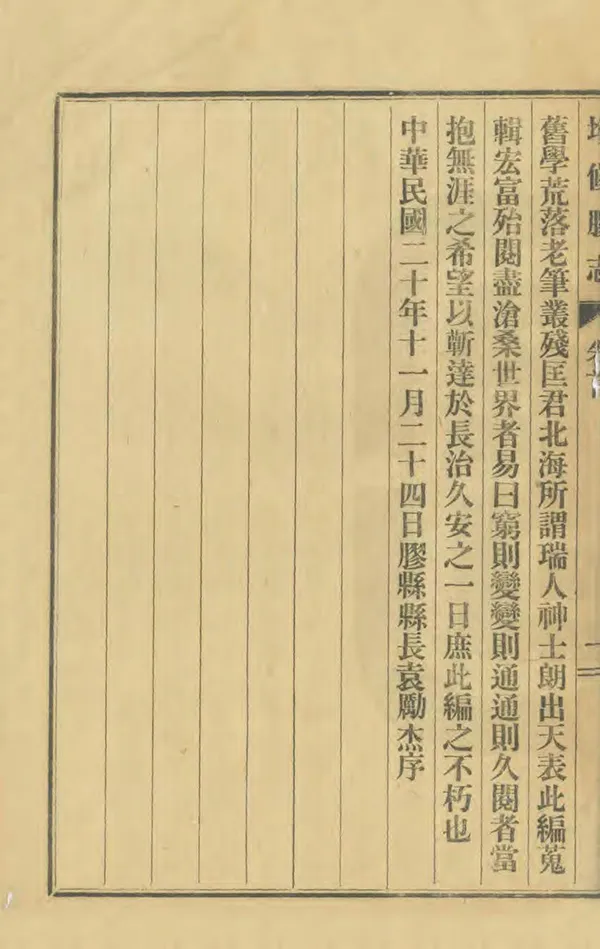 增修膠志
舊學荒落老筆叢殘匡君北海所謂瑞人神士朗出天表此編蒐
輯宏富殆閱盡滄桑世界者易曰窮則變變則通通則久閱者當
抱無涯之希望以蘄達於長治久安之一日庶此編之不朽也
中華民國二十年十一月二十四日膠縣縣長袁勵杰序